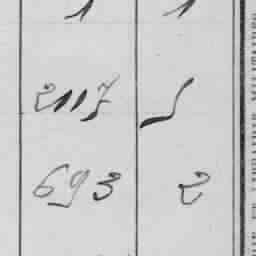 1 1
2117
693 2